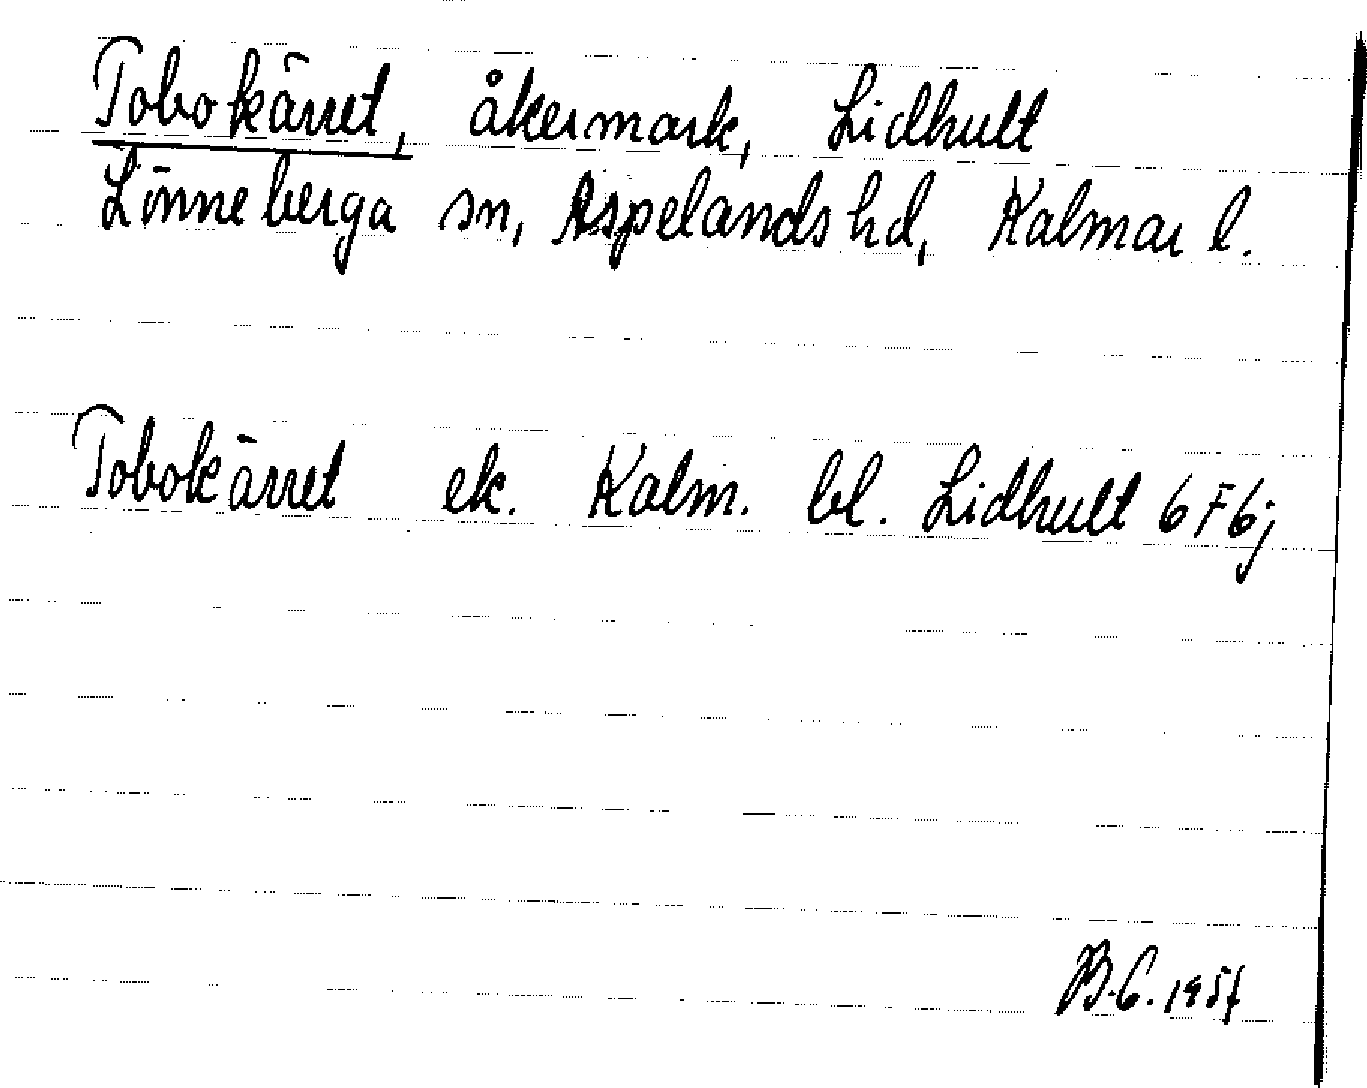 Tobokärret, åkermark, Lidhult
Lönneberga sn, Aspelands hd, Kalmar l.
Tobokärret ek. Kalm. bl. Lidhult 6F6j
B.C. 1957